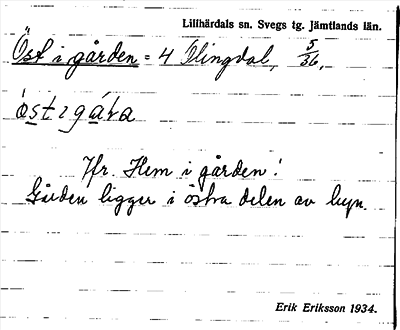 Lillhärdals sn. Svegs tg. Jämtlands län.
Öst i gården = 4 Olingdal, 5/36,
östigáɾa
Jfr. Hem i gården!
Gården ligger i östra delen av byn.
Erik Eriksson 1934.